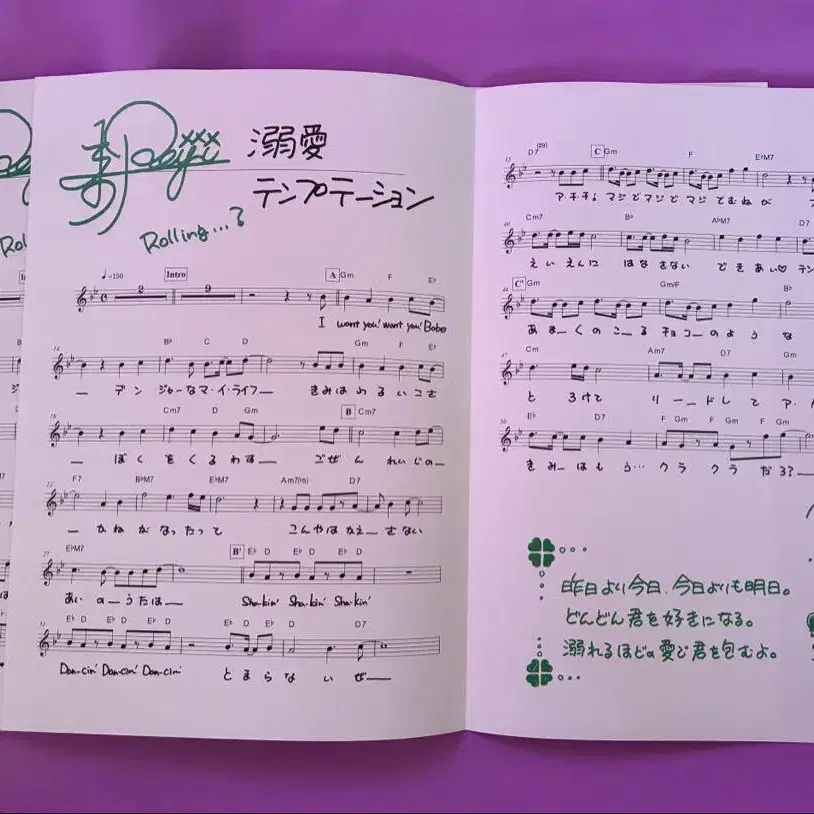 溺愛
テンプテーション
Rolling...?
♩=150 Intro A Gm F E♭
2 9
I want you! want you! Babe
B♭ C D Gm F E♭
デンジャーなマ・イ・ライフー きみはわるいこさ
Cm7 D Gm B Cm7
ぼくをくるわすー ごぜんれいじのー
F7 B♭M7 E♭M7 Am7(♭5) D7
かねがなったって こんやはかえーさない
E♭M7 B' E♭ D E♭ D E♭ D
あいのーうたはー Sha-kin' Sha-kin' Sha-kin'
E♭ D E♭ D E♭ D E♭ D E♭ D D7
Dan-cin' Dan-cin' Dan-cin' とまらないぜー
D7 C Gm F E♭M7
ア・チ・チ! マジでマジでマジでむねが
Cm7 B♭ A♭M7 D7
えいえんに はなさない できあい♡ テン
C' Gm Gm/F B♭
あまーくのこーるチョコーのような
Cm Am7 D7 Gm
とろけて リードして ア・
E♭ D7 F Gm F Gm F Gm
きみーはもう… クラクラだろ?ー
昨日より今日、今日よりも明日。
どんどん君を好きになる。
溺れるほどの愛で君を包むよ。